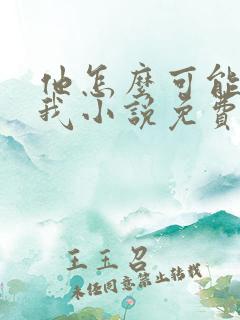 他怎麼可能
我小說免費
王玉召
未经同意禁止转载